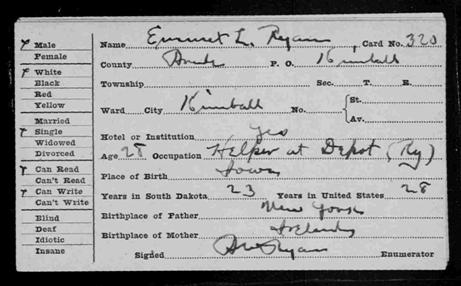 ✓ Male
Female
✓ White
Black
Red
Yellow
Married
✓ Single
Widowed
Divorced
✓ Can Read
Can't Read
✓ Can Write
Can't Write
Blind
Deaf
Idiotic
Insane
Name Emmet L. Ryan Card No. 320
County Brule P. O. Kimball
Township Sec. T. R.
Ward City Kimball No. { St. Av.
Hotel or Institution Yes
Age 28 Occupation Helper at Depot (Ry)
Place of Birth Iowa
Years in South Dakota 23 Years in United States 28
Birthplace of Father New York
Birthplace of Mother Ireland
Signed Ryan Enumerator